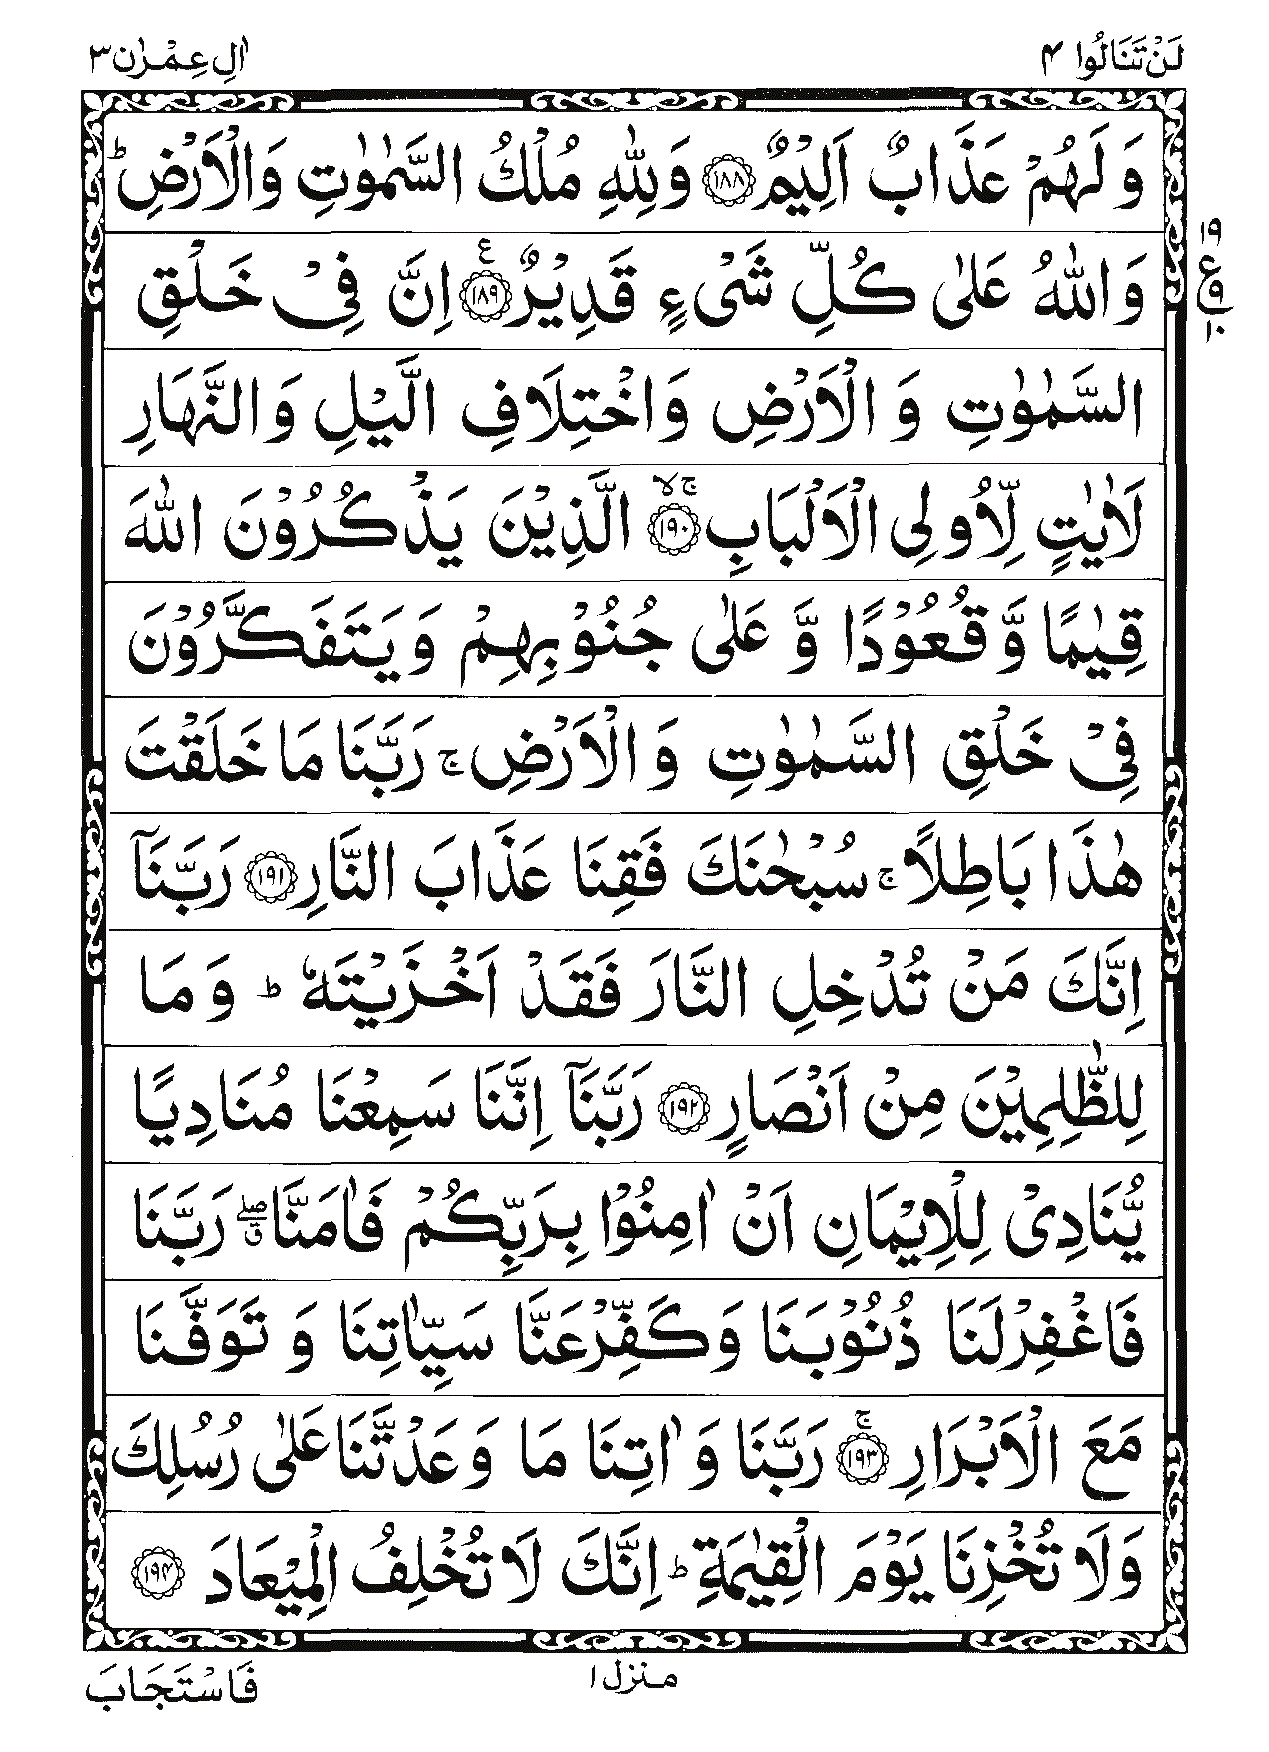 لَنْ تَنَالُوا ۴
اٰلِ عِمْرٰن ۳
وَ لَهُمْ عَذَابٌ اَلِيْمٌ ﴿۱۸۸﴾ وَلِلّٰهِ مُلْكُ السَّمٰوٰتِ وَالْاَرْضِ ؕ
۱۹
ع
۹
۱۰
وَ اللّٰهُ عَلٰى كُلِّ شَیْءٍ قَدِيْرٌ ﴿۱۸۹﴾ ع اِنَّ فِیْ خَلْقِ
السَّمٰوٰتِ وَ الْاَرْضِ وَاخْتِلَافِ الَّيْلِ وَ النَّهَارِ
لَاٰيٰتٍ لِّاُولِی الْاَلْبَابِ ﴿۱۹۰﴾ ۚۙ الَّذِيْنَ يَذْكُرُوْنَ اللّٰهَ
قِيٰمًا وَّ قُعُوْدًا وَّ عَلٰى جُنُوْبِهِمْ وَ يَتَفَكَّرُوْنَ
فِیْ خَلْقِ السَّمٰوٰتِ وَ الْاَرْضِ ۚ رَبَّنَا مَا خَلَقْتَ
هٰذَا بَاطِلًا ۚ سُبْحٰنَكَ فَقِنَا عَذَابَ النَّارِ ﴿۱۹۱﴾ رَبَّنَاۤ
اِنَّكَ مَنْ تُدْخِلِ النَّارَ فَقَدْ اَخْزَيْتَهٗ ؕ وَ مَا
لِلظّٰلِمِيْنَ مِنْ اَنْصَارٍ ﴿۱۹۲﴾ رَبَّنَاۤ اِنَّنَا سَمِعْنَا مُنَادِيًا
يُّنَادِیْ لِلْاِيْمَانِ اَنْ اٰمِنُوْا بِرَبِّكُمْ فَاٰمَنَّا ۖق رَبَّنَا
فَاغْفِرْ لَنَا ذُنُوْبَنَا وَ كَفِّرْ عَنَّا سَيِّاٰتِنَا وَ تَوَفَّنَا
مَعَ الْاَبْرَارِ ﴿۱۹۳﴾ ۚ رَبَّنَا وَ اٰتِنَا مَا وَعَدْتَّنَا عَلٰى رُسُلِكَ
وَلَا تُخْزِنَا يَوْمَ الْقِيٰمَةِ ؕ اِنَّكَ لَا تُخْلِفُ الْمِيْعَادَ ﴿۱۹۴﴾
منزل ۱
فَاسْتَجَابَ